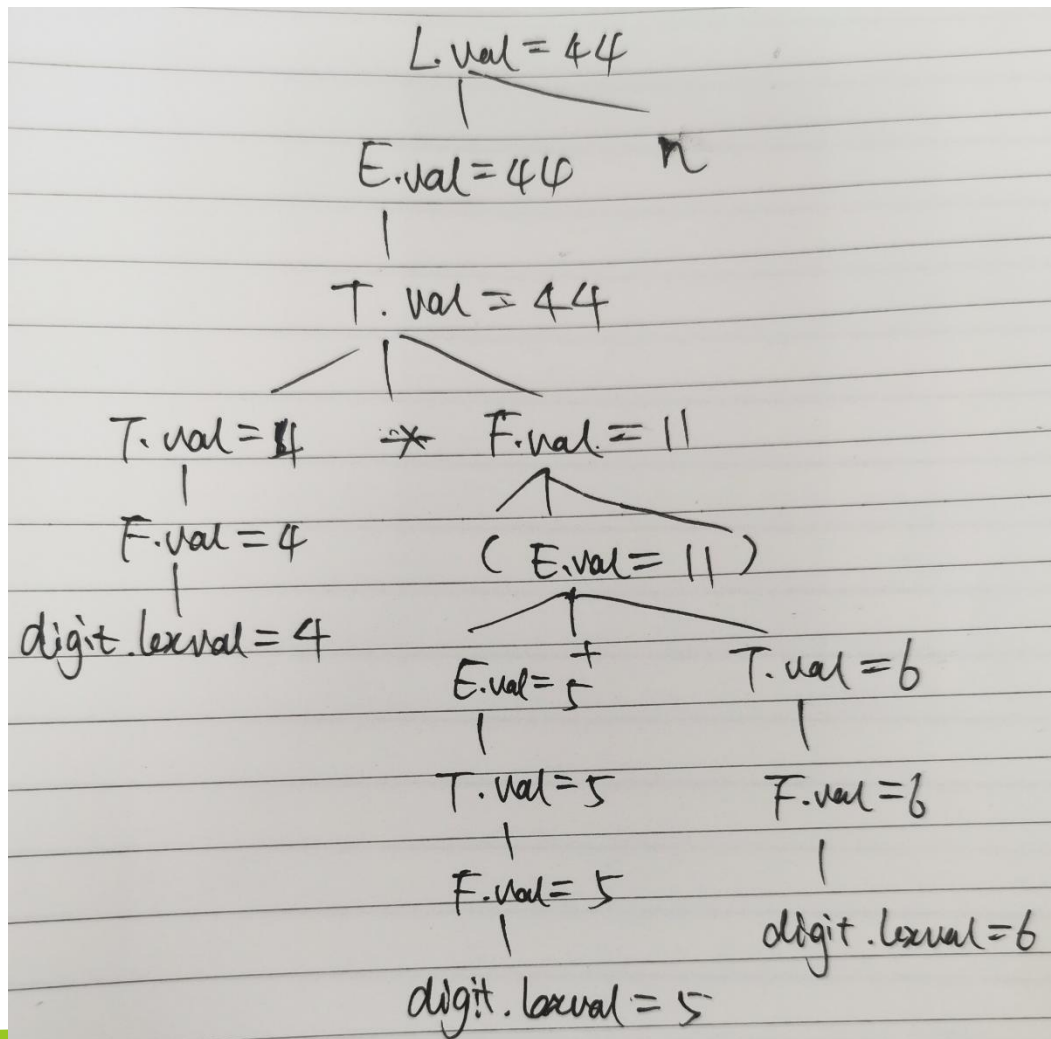 L.val = 44
E.val = 44 n
T.val = 44
T.val = 4 * F.val = 11
F.val = 4 ( E.val = 11 )
digit.lexval = 4 E.val = 5 + T.val = 6
T.val = 5 F.val = 6
F.val = 5 digit.lexval = 6
digit.lexval = 5